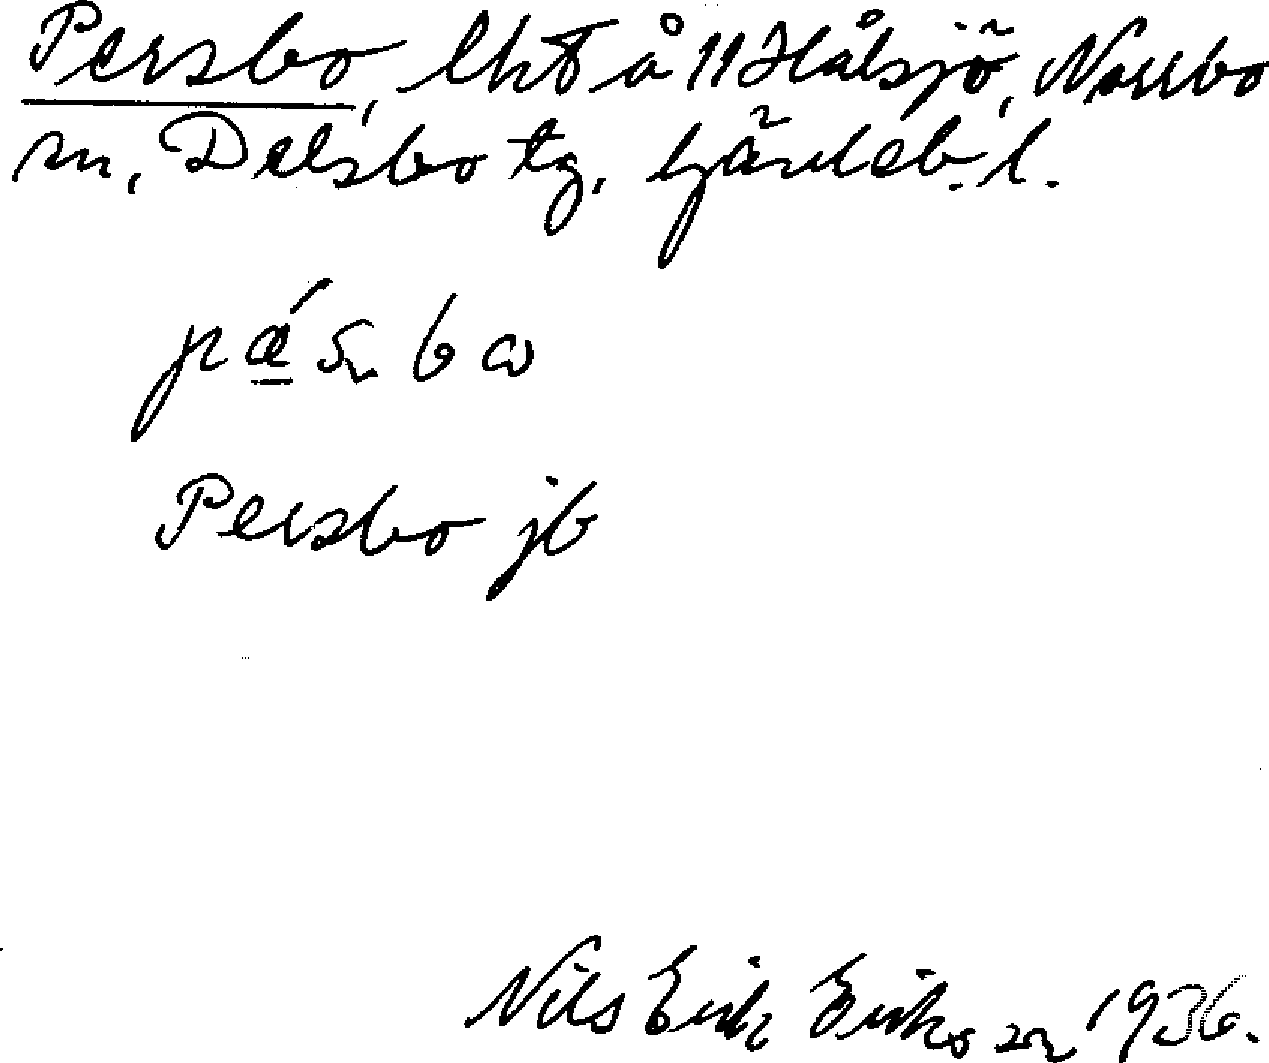 Persbo, lht å 11 Hålsjö, Norrbo
sn, Delsbo tg, Gävleb. l.
Persbo jb
Nils Erik Eriksson 1936.